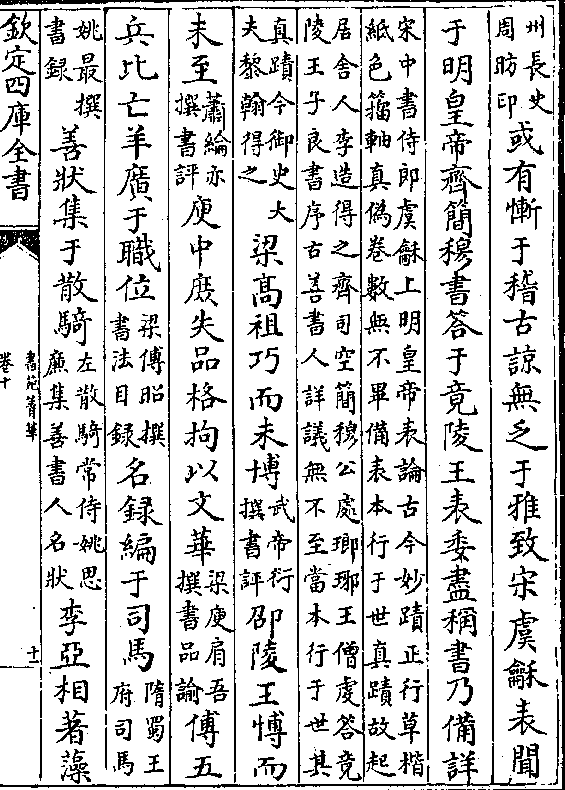 州長史
周昉印
或有慚于稽古諒無乏于雅致宋虞龢表聞
于明皇帝齊簡穆書答于竟陵王表委盡稱書乃備詳
宋中書侍郎虞龢上明皇帝表論古今妙蹟正行草楷
紙色籀軸真偽卷數無不畢備表本行于世真蹟故起
居舍人李造得之齊司空簡穆公處瑯琊王僧虔答竟
陵王子良書序古善書人詳議無不至當本行于世其
真蹟今御史大
夫黎翰得之
梁髙祖巧而未博
武帝衍
撰書評
邵陵王慱而
未至
蕭綸亦
撰書評
庾中庶失品格拘以文華
梁庾肩吾
撰書品論
傅五
兵比亡羊廣于職位
梁傅昭撰
書法目録
名録編于司馬
隋蜀王
府司馬
姚最撰
書録
善狀集于散騎
左散騎常侍姚思
廉集善書人名狀
李亞相著藻
欽定四庫全書
書苑菁華
卷十
十一